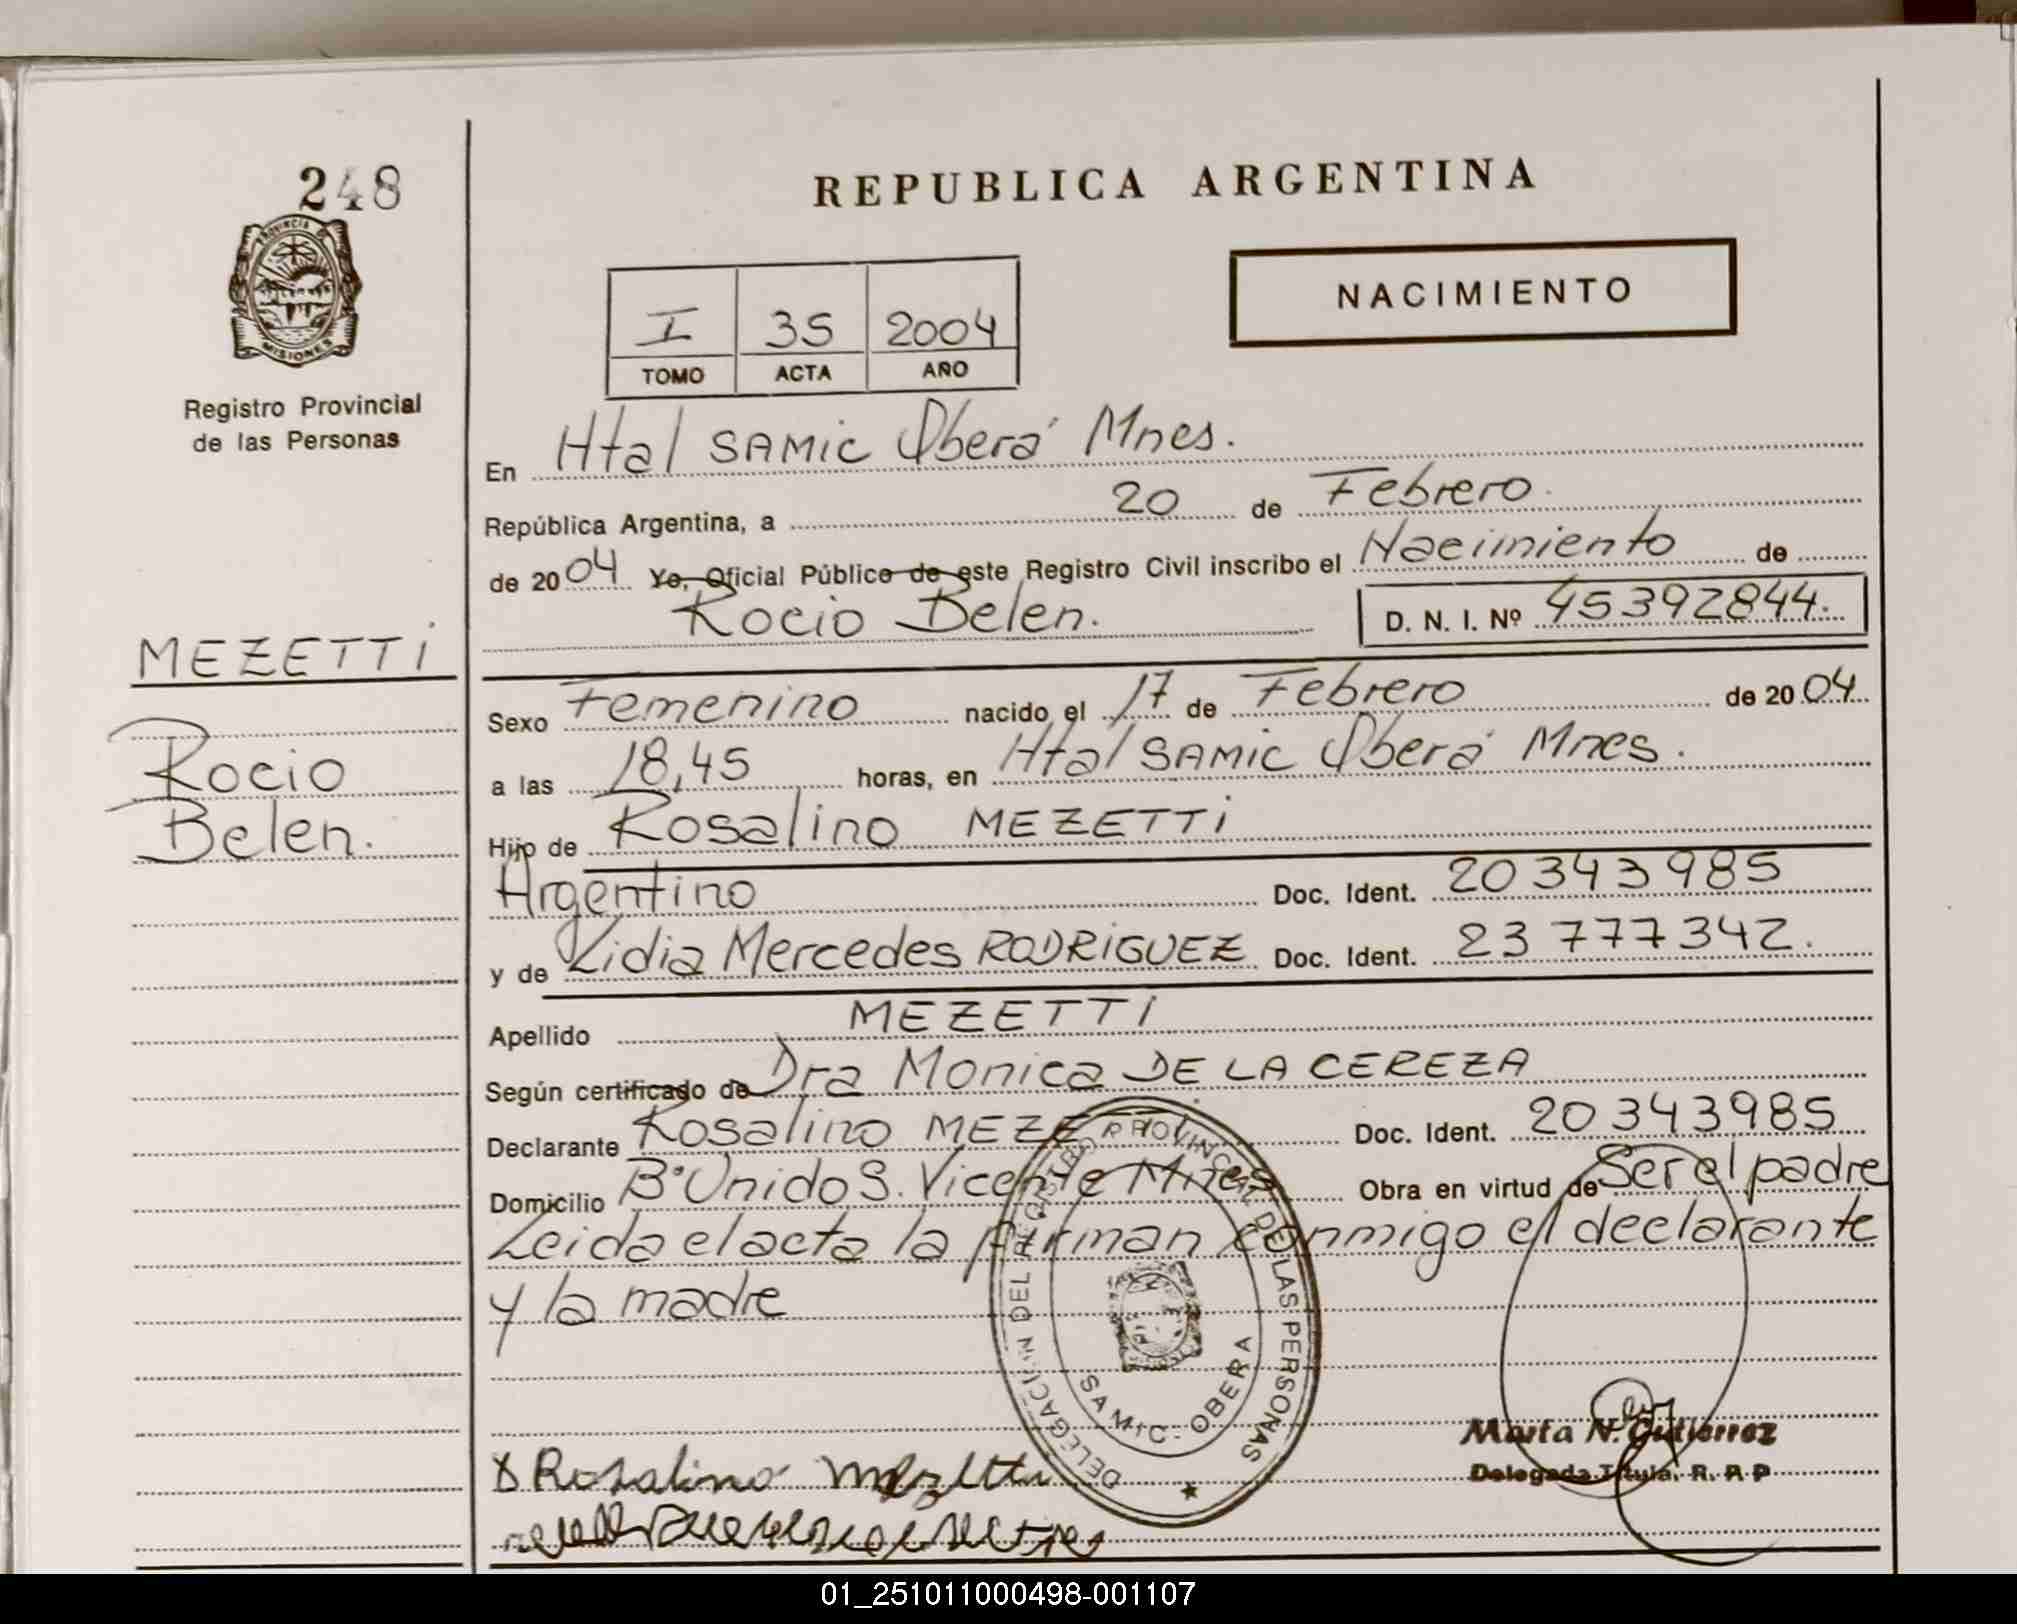 248
PROVINCIA DE
MISIONES
Registro Provincial
de las Personas
MEZETTI
Rocio
Belen.
REPUBLICA ARGENTINA
NACIMIENTO
I 35 2004
TOMO ACTA AÑO
En Htal SAMIC Oberá Mnes.
República Argentina, a 20 de Febrero.
de 2004 Yo, Oficial Público de este Registro Civil inscribo el Nacimiento de
Rocio Belen. D. N. I. Nº 45392844.
Sexo Femenino nacido el 17 de Febrero de 2004
a las 18,45 horas, en Htal SAMIC Oberá Mnes.
Hijo de Rosalino MEZETTI
Argentino Doc. Ident. 20343985
y de Lidia Mercedes RODRIGUEZ Doc. Ident. 23777342.
Apellido MEZETTI
Según certificado de Dra Monica DE LA CEREZA
Declarante Rosalino MEZETTI Doc. Ident. 20343985
Domicilio Bº Unido S. Vicente Mnes Obra en virtud de Ser el padre
Leida el acta la firman conmigo el declarante
y la madre
DELEGACION DEL REGISTRO PROVINCIAL DE LAS PERSONAS
SAMIC - OBERA
Marta N. Gutierrez
Delegada Titular R. P. P
x Rosalino Mezetti
01_251011000498-001107